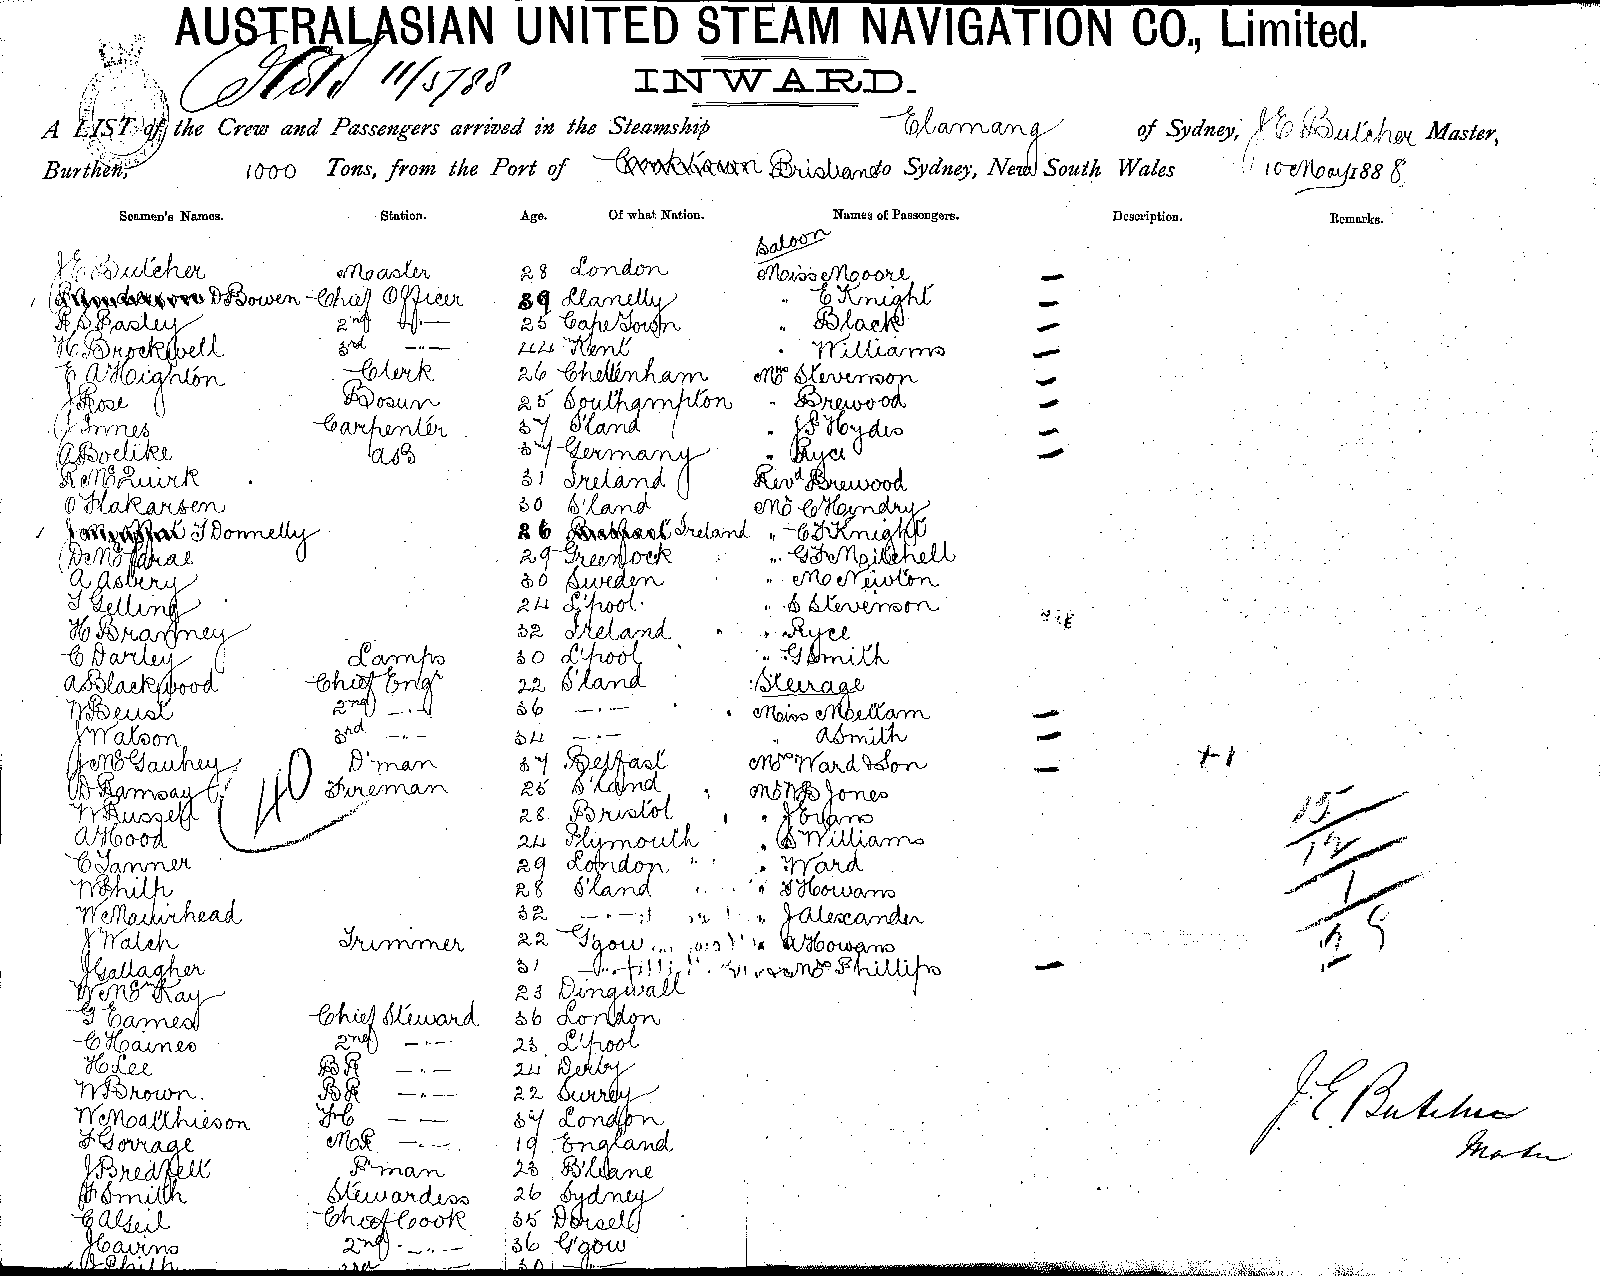 AUSTRALASIAN UNITED STEAM NAVIGATION CO., Limited.
11/5/88
INWARD.
A LIST of the Crew and Passengers arrived in the Steamship Elamang of Sydney, J E Butcher Master,
Burthen, 1000 Tons, from the Port of Cooktown Brisbane to Sydney, New South Wales 10 May 1888
Seamen's Names. Station. Age. Of what Nation. Names of Passengers. Description. Remarks.
Saloon
J E Butcher Master 28 London Miss Moore
D Bowen Chief Officer 39 Llanelly " E Knight
R S Pasley 2nd -"- 25 Cape Town " Black
H Brockwell 3rd -"- 44 Kent " Williams
E A Highton Clerk 26 Cheltenham Mrs Stevenson
J Rose Bosun 25 Southampton " Brewood
J Innes Carpenter 37 S'land " J P Hydes
A Boelike AB 37 Germany " Ryce
R McQuirk 31 Ireland Revd Brewood
O Hakarsen 30 S'land Mr C Hendry
T Donnelly 26 Ireland " C F Knight
D McFaral 29 Greenock " G F Mitchell
A Asbery 30 Sweden " M Newton
T Gelling 24 L'pool " S Stevenson
H Branney 32 Ireland " Ryce
C Darley Lamps 30 L'pool " G Smith
A Blackwood Chief Engr 22 S'land Steerage
W Beust 2nd -"- 36 -"- Miss Mellam
J Watson 3rd -"- 34 -"- " A Smith
J McGauhey D'man 37 Belfast Mrs Ward & Son
D Ramsay Fireman 25 S'land Mr W B Jones
W Russell 28 Bristol " J Evans
A Hood 24 Plymouth " S Williams
C Tanner 29 London " Ward
W Philp 28 S'land " T Howans
W Muirhead 32 -"- " J Alexander
J Walch Trimmer 22 G'gow " A Howans
J Gallagher 31 -"- Mrs Phillips
W McKay 23 Dingwall
G Eames Chief Steward 36 London
C Haines 2nd -"- 23 L'pool
H Lee BR -"- 24 Derby
W Brown BR -"- 22 Surrey
W Matthieson FC -"- 37 London
F Gorrage MR -"- 19 England
J Bredfell P'man 23 B'bane
F Smith Stewardess 26 Sydney
C A Geil Chief Cook 35 Dorset
J Cairns 2nd -"- 36 G'gow
40
15
12
1
J. E. Butcher
Master